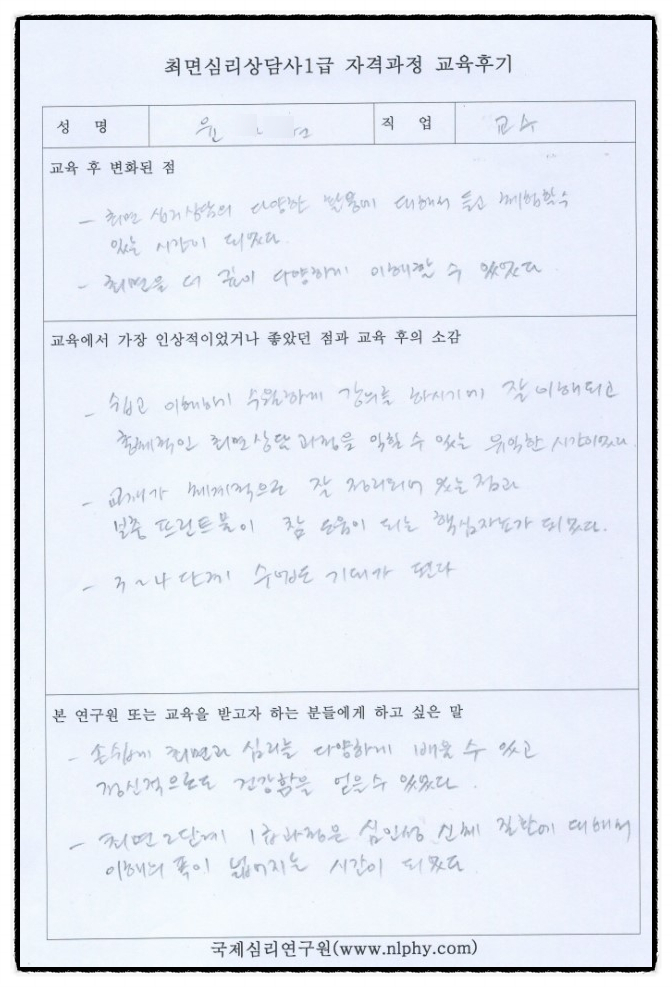 최면심리상담사1급 자격과정 교육후기
성 명 윤 직 업 교수
교육 후 변화된 점
- 최면 심리상담의 다양한 활용에 대해서 듣고 체험할 수
있는 시간이 되었다.
- 최면을 더 깊이 다양하게 이해할 수 있었다
교육에서 가장 인상적이었거나 좋았던 점과 교육 후의 소감
- 쉽고 이해하기 수월하게 강의를 하시기에 잘 이해되고
최면상담 과정을 익힐 수 있는 유익한 시간이었다.
- 교재가 체계적으로 잘 정리되어 있는 점과
보충 프린트물이 참 도움이 되는 핵심자료가 되었다.
- 단계 수업도 기대가 된다
본 연구원 또는 교육을 받고자 하는 분들에게 하고 싶은 말
- 손쉽게 최면과 심리를 다양하게 배울 수 있고
정신적으로도 건강함을 얻을 수 있었다.
- 최면2단계 1급과정은 심인성 신체 질환에 대해서
이해의 폭이 넓어지는 시간이 되었다.
국제심리연구원(www.nlphy.com)